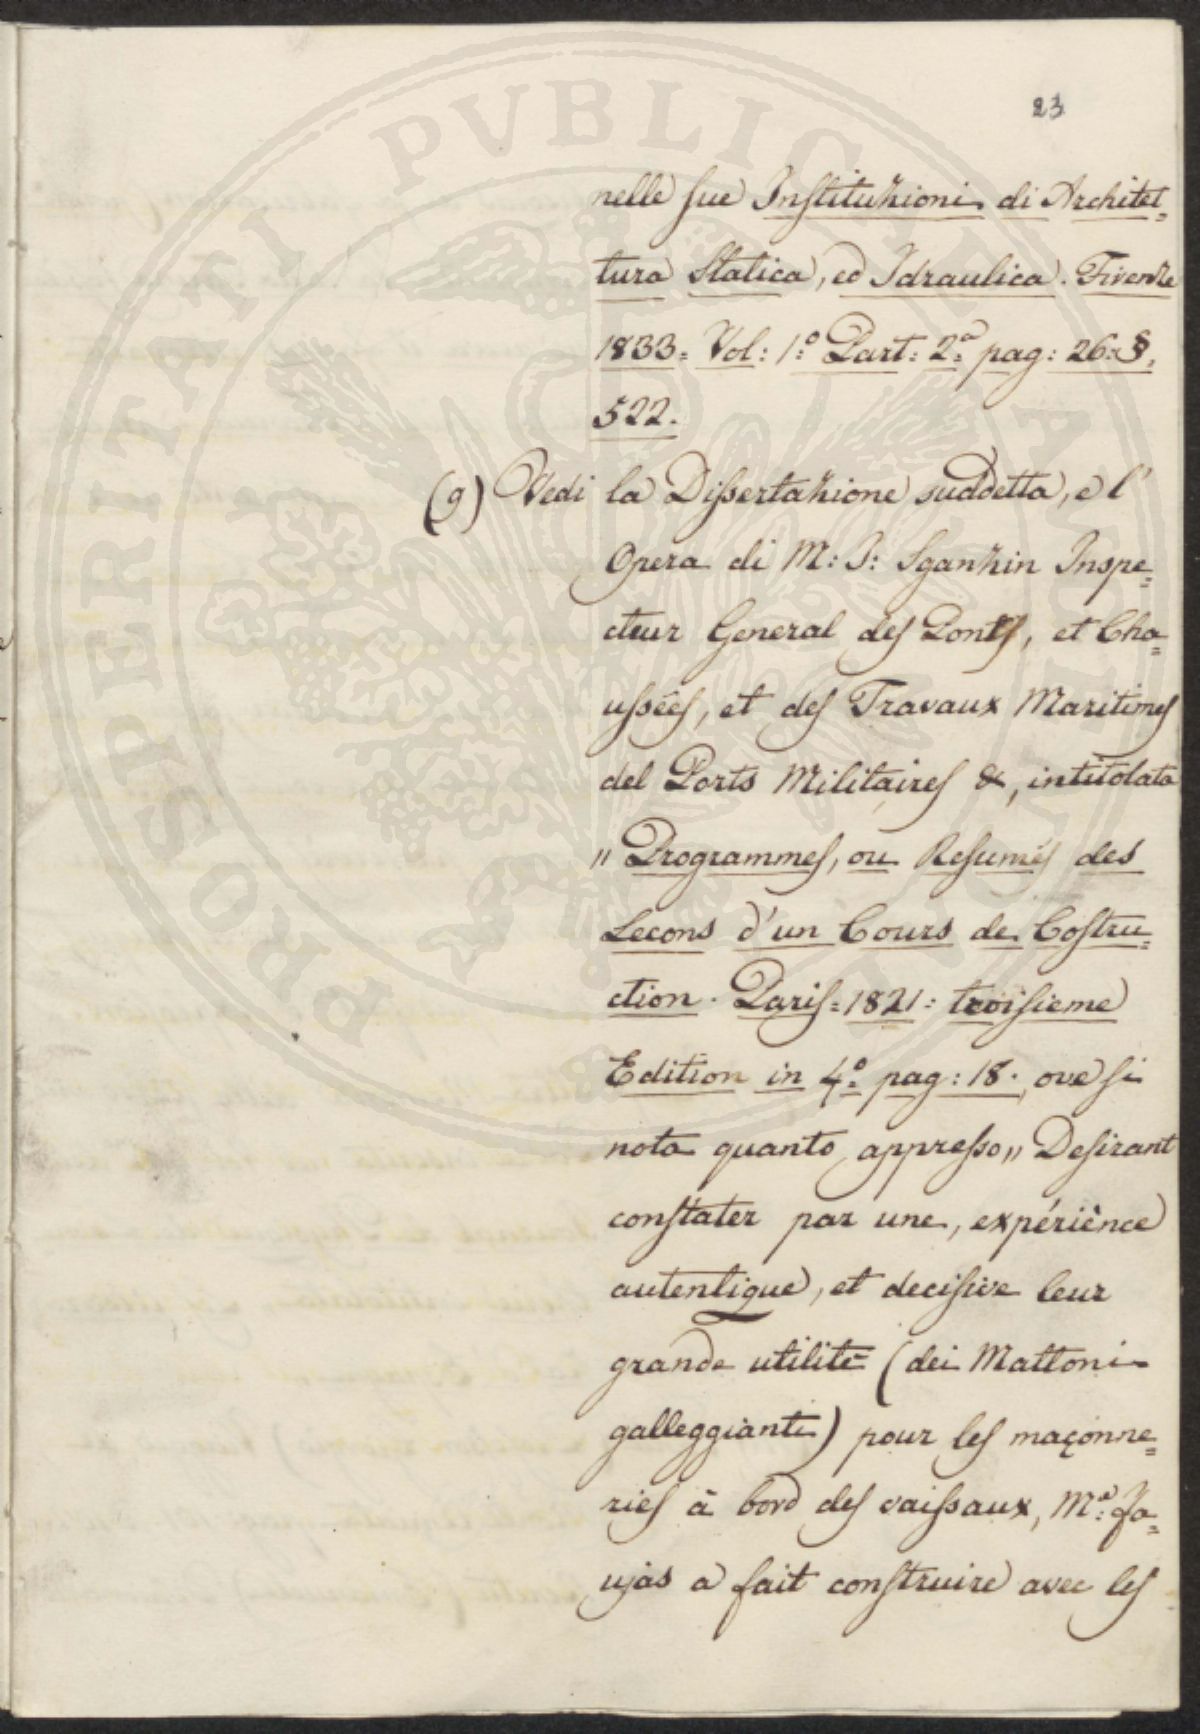 23
nelle sue Instituzioni di Architet=
tura Statica, ed Idraulica. Firenze
1833= Vol: 1.º Part: 2.ª pag: 26=§.
522.
(9) Vedi la Dissertazione suddetta, e l'
Opera di M: J: Sganzin Inspe=
cteur General des Ponts, et Cha=
ussées, et des Travaux Maritimes
del Ports Militaires &, intitolata
„ Programmes, ou Resumés des
Lecons d'un Cours de Costru=
ction. Paris=1821: troisieme
Edition in 4.º pag: 18. ove si
nota quanto appresso „ Desirant
constater par une, expériènce
autentique, et decisive leur
grande utilité (dei Mattoni
galleggianti) pour les maçonne=
ries à bord des vaissaux, M.ʳ Fa=
ujas a fait construire avec les
PROSPERITATI PVBLICAE